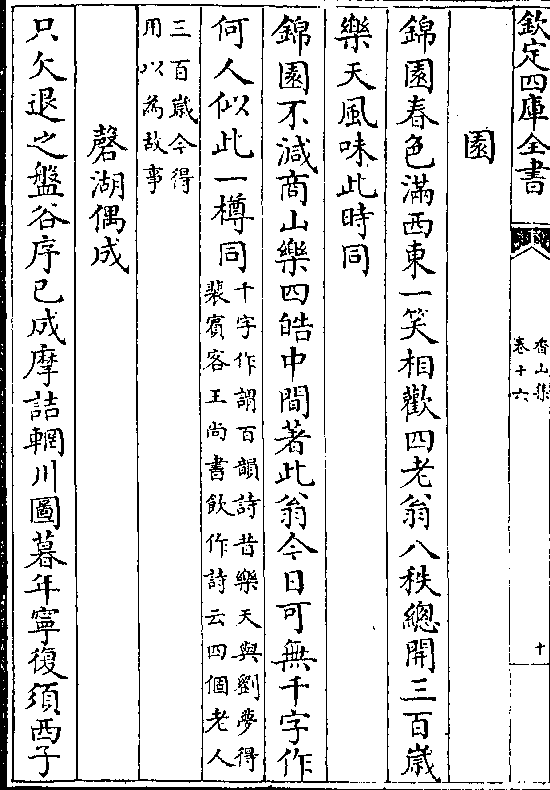 欽定四庫全書
香山集
卷十六
十
園
錦園春色滿西東一笑相歡四老翁八秩總開三百歲
樂天風味此時同
錦園不減商山樂四皓中間著此翁今日可無千字作
何人似此一樽同
千字作謂百韻詩昔樂天與劉夢得
裴賓客王尚書飲作詩云四個老人
三百歲今得
用以為故事
磬湖偶成
只欠退之盤谷序已成摩詰輞川圖暮年寧復須西子